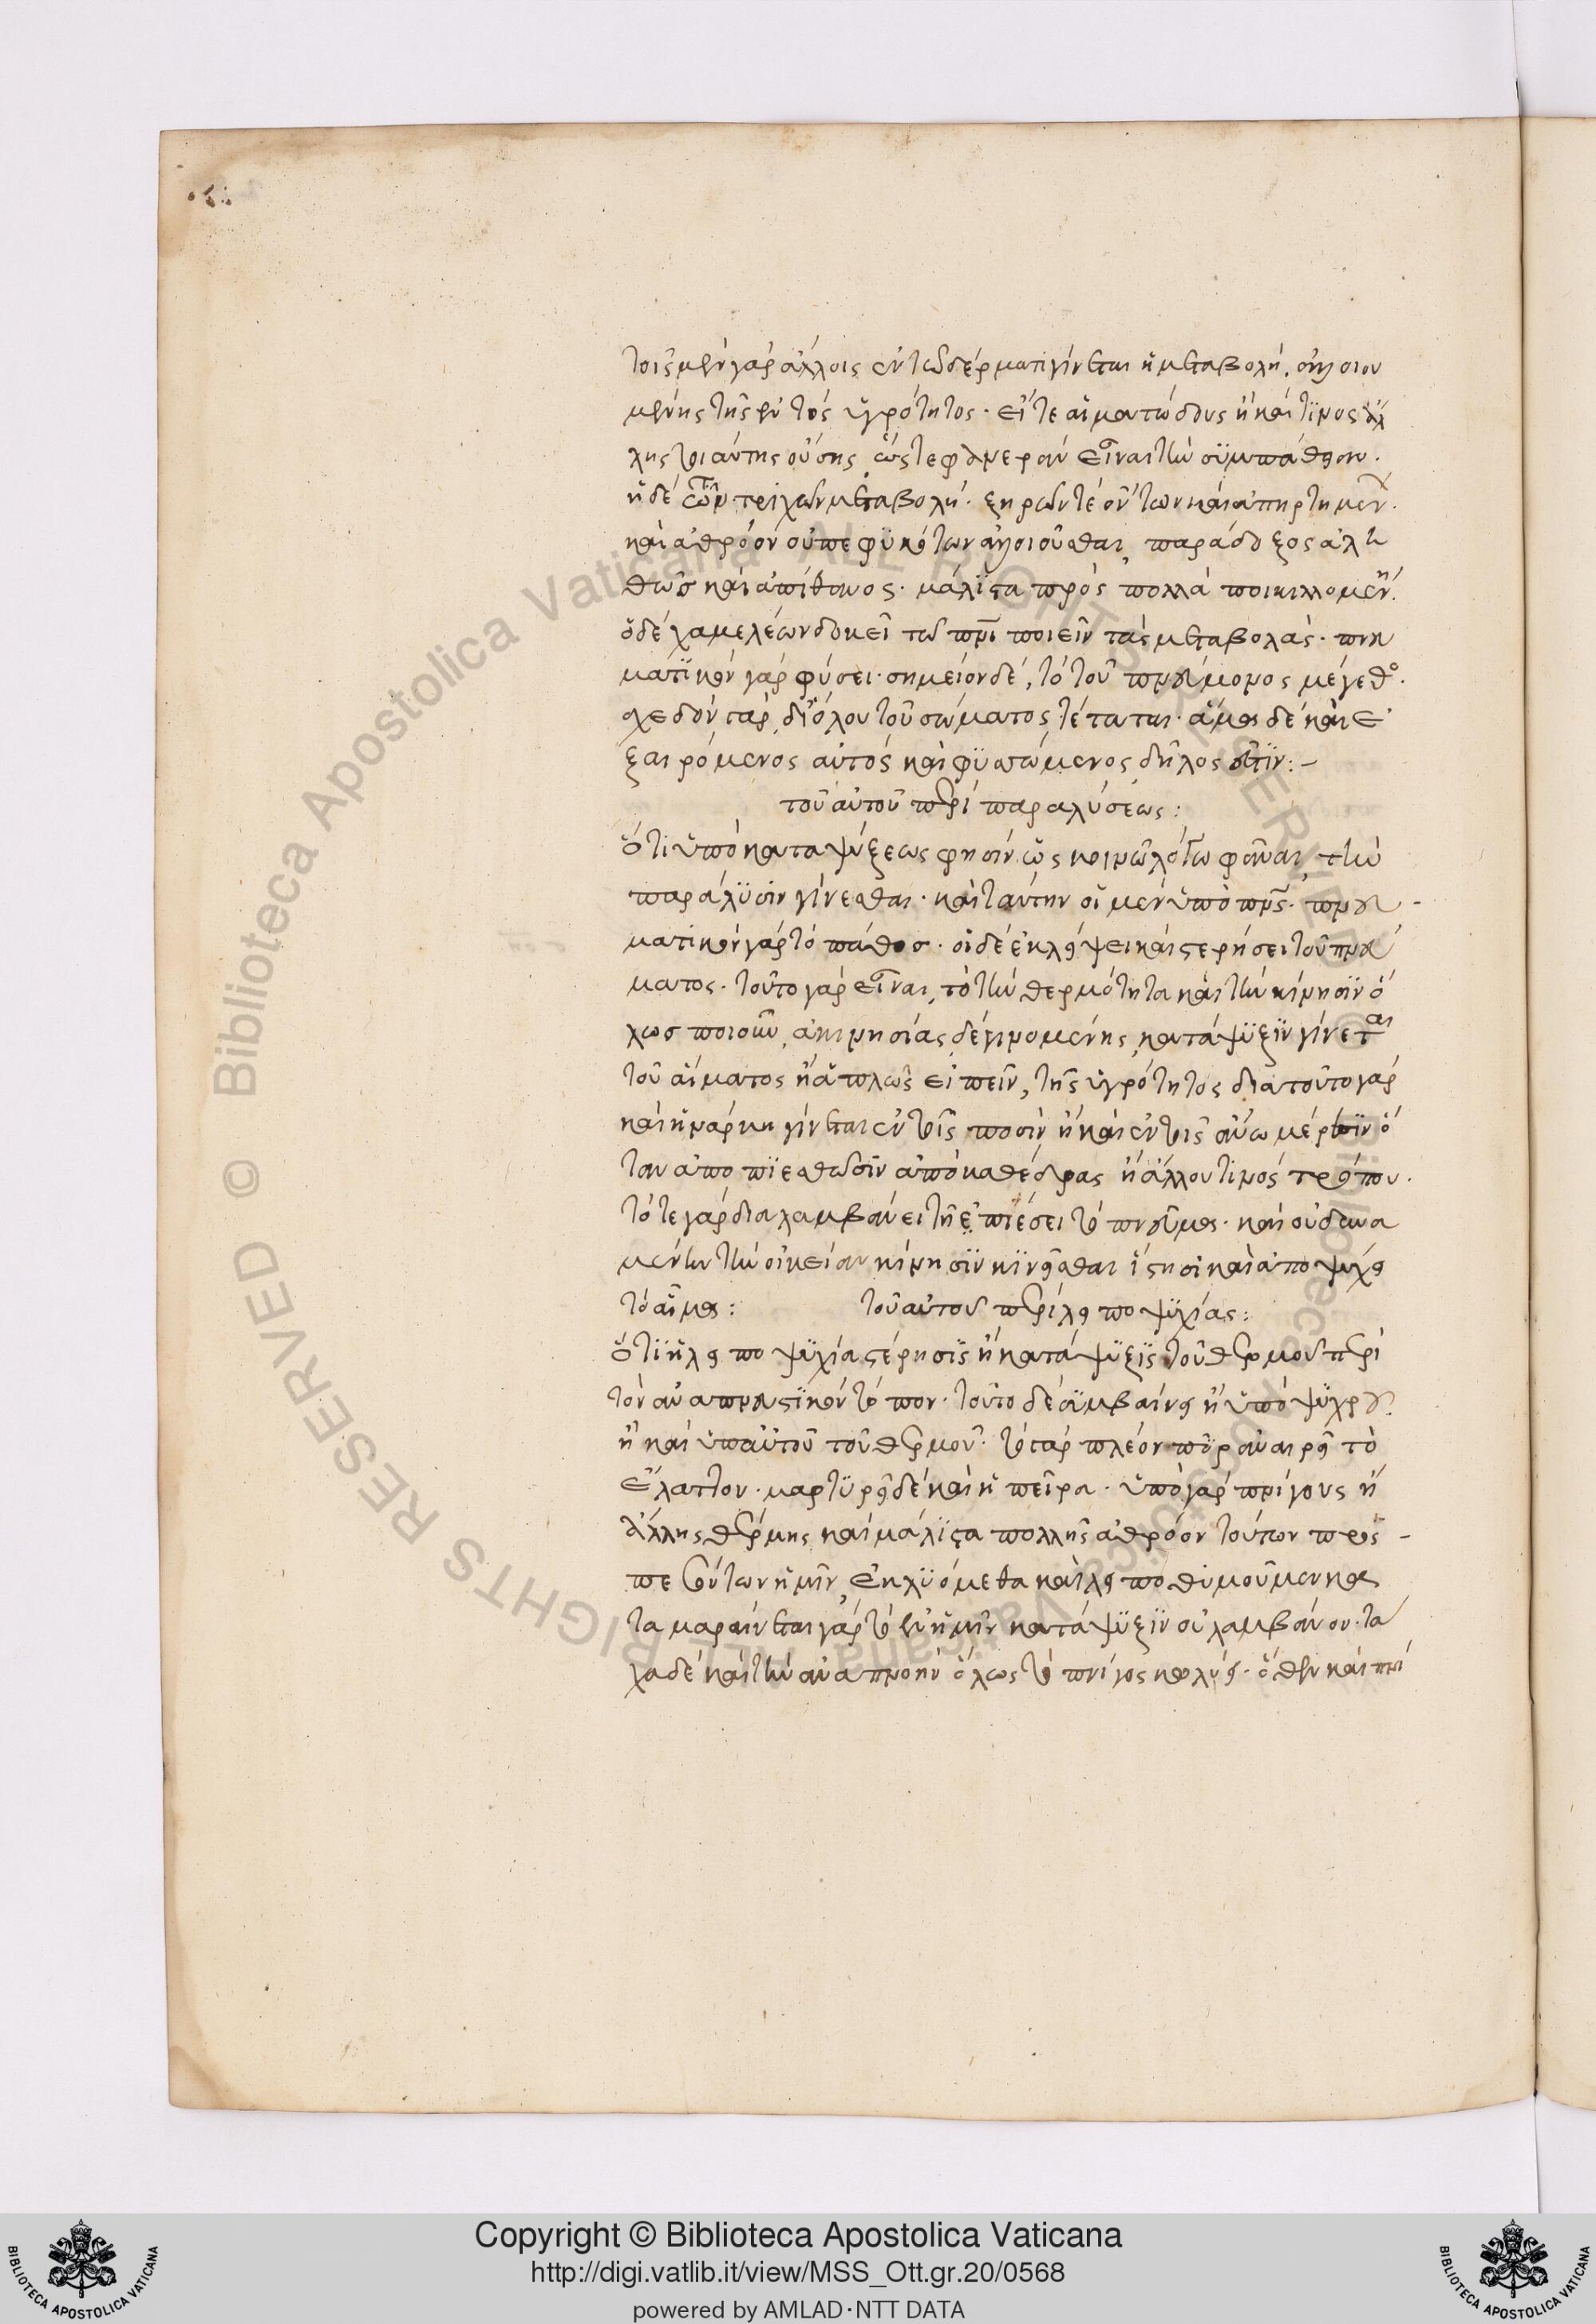 τοῖς μὲν γὰρ ἄλλοις ἐν τῶ δέρματι γίνεται ἡ μεταβολὴ, ἀλλοιου
μένης τῆς ἐντὸς ὑγρότητος· εἴτε αἱματώδους ἢ καί τινος ἀλ
λης τοιαύτης οὔσης, ὥστε φανερὰν εἶναι τὴν συμπάθειαν·
ἡ δὲ τῶν τριχῶν μεταβολὴ· ξηρῶν τὲ ὄντων καὶ ἀπηρτημένων·
καὶ ἀθρόον οὐ πεφυκότων ἀλλοιοῦσθαι, παράδοξος ἀλη
θῶς καὶ ἀπίθανος· μάλιστα πρὸς πολλὰ ποικιλλομένη·
ὁ δὲ χαμελέων δοκεῖ τῶ πνι ποιεῖν τὰς μεταβολάς· πνευ
ματικὸν γὰρ φύσει· σημεῖον δὲ, τὸ τοῦ πνεύμονος μέγεθος·
σχεδὸν γὰρ δι' ὅλου τοῦ σώματος τέταται· ἅμα δὲ καὶ ἐ
ξαιρόμενος αὐτὸς καὶ φυσώμενος δῆλος ἐστίν:–
τοῦ αὐτοῦ περὶ παραλύσεως:
Ὅτι ὑπὸ καταψύξεως φησὶν ὡς κοινῶ λόγω φάναι, τὴν
παράλυσιν γίνεσθαι· καὶ ταύτην οἱ μὲν ὑπὸ πνς· πνευ-
ματικὸν γὰρ τὸ πάθος· οἱ δὲ ἐκλείψει καὶ στερήσει τοῦ πνεύ
ματος· τοῦτο γὰρ εἶναι, τὸ τὴν θερμότητα καὶ τὴν κίνησιν ὅ
λως ποιοῦν, ἀκινησίας δὲ γινομένης, κατάψυξιν γίνεται
τοῦ αἵματος ἢ ἁπλῶς εἰπεῖν, τῆς ὑγρότητος διὰ τοῦτο γὰρ
καὶ ἡ νάρκη γίνεται ἐν τοῖς ποσὶν ἢ καὶ ἐν τοῖς ἄνω μέρεσιν ὅ
ταν ἀποπιεσθῶσιν ἀπὸ καθέδρας ἢ ἄλλου τινός τρόπου·
τότε γὰρ διαλαμβάνει τῆ ἐπιέσει τὸ πνεῦμα· καὶ οὐ δυνά
μενον τὴν οἰκείαν κίνησιν κινεῖσθαι ἵστησι καὶ ἀποψύχει
τὸ αἷμα: τοῦ αὐτοῦ περὶ λειποψυχίας:
Ὅτι ἡ λειποψυχία στέρησις ἢ κατάψυξις τοῦ θερμοῦ περὶ
τὸν ἀναπνευστικὸν τόπον· τοῦτο δὲ συμβαίνει ἢ ὑπὸ ψυχροῦ·
ἢ καὶ ὑπ' αὐτοῦ τοῦ θερμοῦ· τὸ γὰρ πλέον πῦρ ἀναιρεῖ τὸ
ἔλαττον· μαρτυρεῖ δὲ καὶ ἡ πεῖρα· ὑπὸ γὰρ πνίγους ἢ
ἄλλης θέρμης καὶ μάλιστα πολλῆς ἀθρόον τούτων προσ-
πεσόντων ἡμῖν, ἐκλυόμεθα καὶ λειποθυμοῦμεν κα
ταμαραίνεται γὰρ τὸ ἐν ἡμῖν κατάψυξιν οὐ λαμβάνον· τά
χα δὲ καὶ τὴν ἀναπνοὴν ὅλως τὸ πνίγος κωλύει· ὅθεν καὶ πνί
Copyright © Biblioteca Apostolica Vaticana
http://digi.vatlib.it/view/MSS_Ott.gr.20/0568
powered by AMLAD·NTT DATA